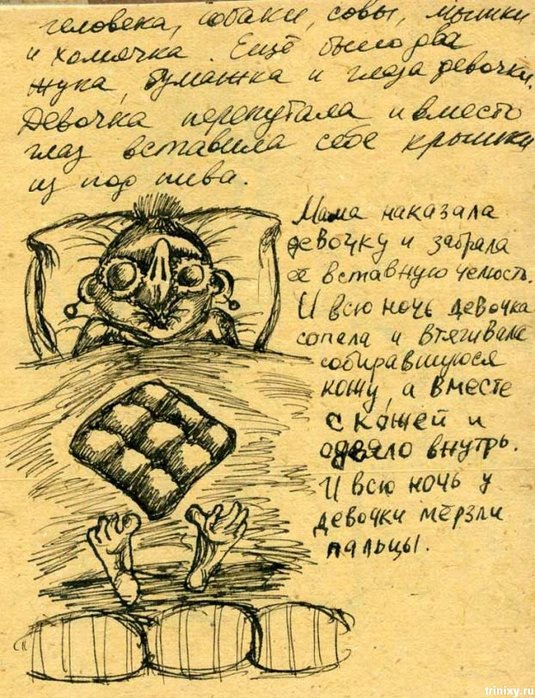 человека, собаки, совы, мышки
и хомячка. Ещё было два
жука, бумажка и глаза девочки.
Девочка перепутала и вместо
глаз вставила себе крышки
из под пива.
Мама наказала
девочку и забрала
ее вставную челюсть.
И всю ночь девочка
сопела и втягивала
собиравшуюся
кожу, а вместе
с кожей и
одеяло внутрь.
И всю ночь у
девочки мёрзли
пальцы.
trinixy.ru